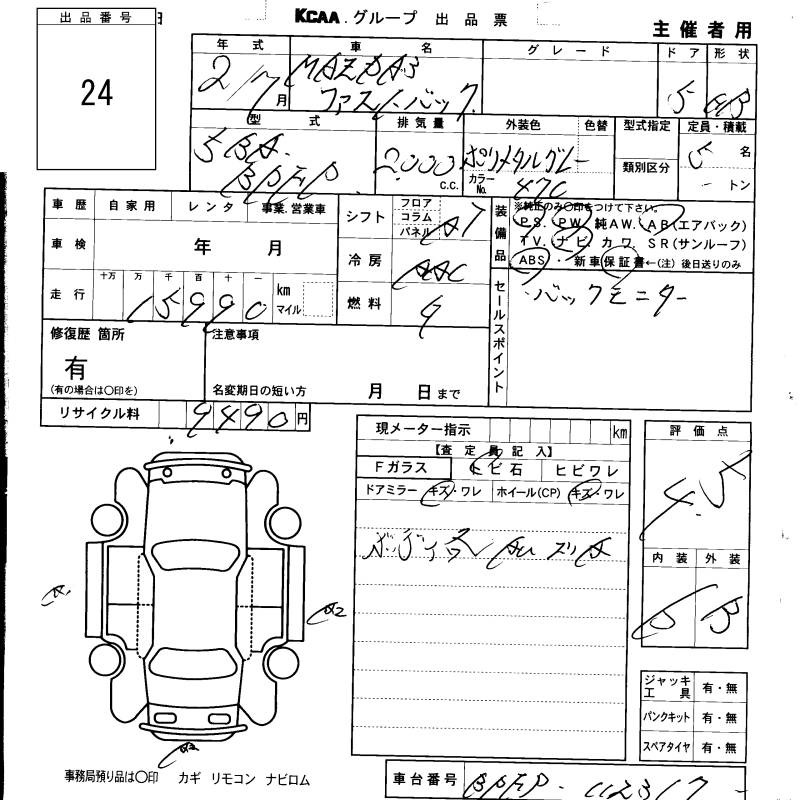 KCAA グループ 出品票
主催者用
出品番号
24
年式 車名 グレード ドア 形状
2/7月 MAZDA3 ファストバック 5 HB
型式 排気量 外装色 色替 型式指定 定員・積載
5BA- BPFP 2000 C.C. ポリメタルグレー カラーNo. 47C 類別区分 5名
-トン
車歴 自家用 レンタ 事業.営業車 シフト フロア コラム パネル AT
装備品 ※純正のみ〇印をつけて下さい。
P.S. PW 純AW. AB(エアバック)
TV. ナビ カワ. SR(サンルーフ)
ABS・ 新車保証書←(注) 後日送りのみ
車検 年 月 冷房 AAC
走行 十万 万 千 百 十 一
15990 km マイル 燃料 G
セールスポイント ・バックモニター
修復歴 箇所 注意事項
有
(有の場合は〇印を) 名変期日の短い方 月 日まで
リサイクル料 9490円
現メーター指示 km
【査定員記入】
Fガラス トビ石 ヒビワレ
ドアミラー キズ・ワレ ホイール(CP) キズ・ワレ
評価点
4.5
内装 外装
B B
A1
A2
ジャッキ工具 有・無
パンクキット 有・無
スペアタイヤ 有・無
事務局預り品は〇印 カギ リモコン ナビロム
車台番号 BPFP-112317